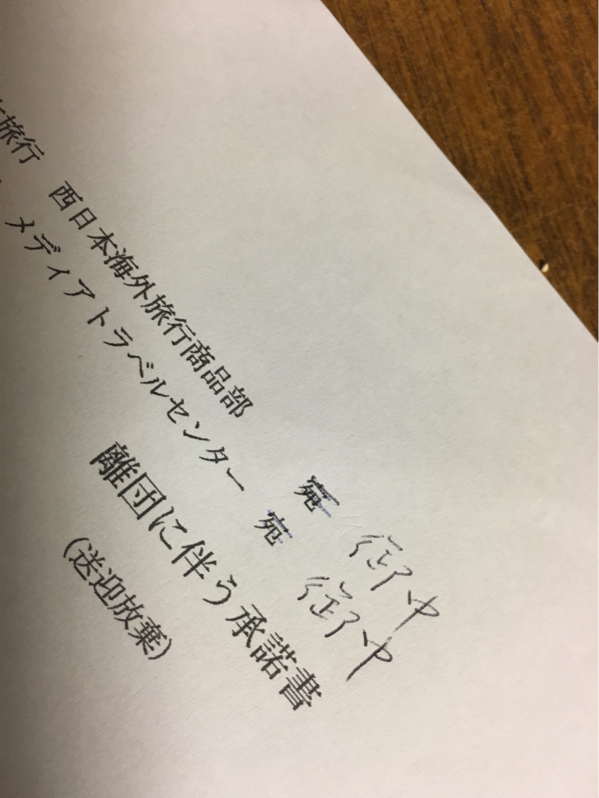 旅行　西日本海外旅行商品部　宛　御中
メディアトラベルセンター　宛　御中
離団に伴う承諾書
(送迎放棄)